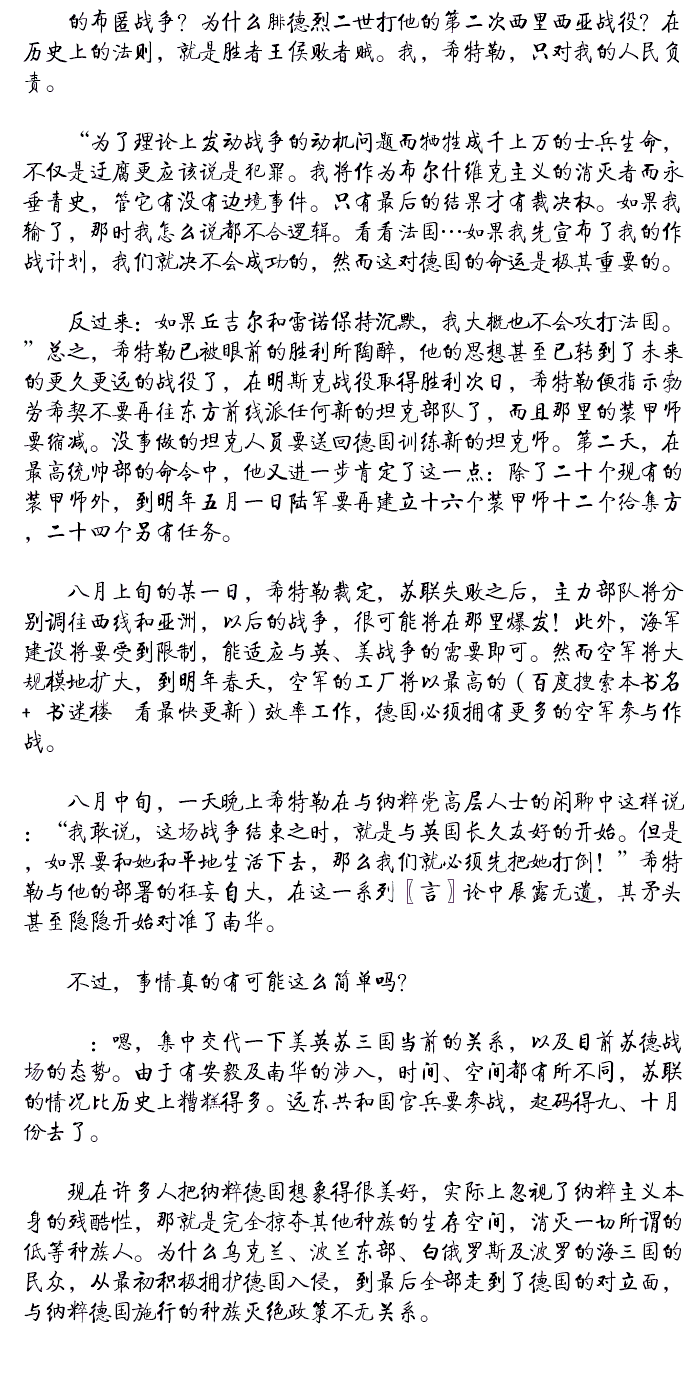 的布匿战争？为什么腓德烈二世打他的第二次西里西亚战役？在
历史上的法则，就是胜者王侯败者贼。我，希特勒，只对我的人民负
责。
“为了理论上发动战争的动机问题而牺牲成千上万的士兵生命，
不仅是迂腐更应该说是犯罪。我将作为布尔什维克主义的消灭者而永
垂青史，管它有没有边境事件。只有最后的结果才有裁决权。如果我
输了，那时我怎么说都不合逻辑。看看法国…如果我先宣布了我的作
战计划，我们就决不会成功的，然而这对德国的命运是极其重要的。
反过来：如果丘吉尔和雷诺保持沉默，我大概也不会攻打法国。
”总之，希特勒已被眼前的胜利所陶醉，他的思想甚至已转到了未来
的更久更远的战役了，在明斯克战役取得胜利次日，希特勒便指示勃
劳希契不要再往东方前线派任何新的坦克部队了，而且那里的装甲师
要缩减。没事做的坦克人员要送回德国训练新的坦克师。第二天，在
最高统帅部的命令中，他又进一步肯定了这一点：除了二十个现有的
装甲师外，到明年五月一日陆军要再建立十六个装甲师十二个给集方
，二十四个另有任务。
八月上旬的某一日，希特勒裁定，苏联失败之后，主力部队将分
别调往西线和亚洲，以后的战争，很可能将在那里爆发！此外，海军
建设将要受到限制，能适应与英、美战争的需要即可。然而空军将大
规模地扩大，到明年春天，空军的工厂将以最高的（百度搜索本书名
+ 书迷楼 看最快更新）效率工作，德国必须拥有更多的空军参与作
战。
八月中旬，一天晚上希特勒在与纳粹党高层人士的闲聊中这样说
：“我敢说，这场战争结束之时，就是与英国长久友好的开始。但是
，如果要和她和平地生活下去，那么我们就必须先把她打倒！”希特
勒与他的部署的狂妄自大，在这一系列〖言〗论中展露无遗，其矛头
甚至隐隐开始对准了南华。
不过，事情真的有可能这么简单吗？
：嗯，集中交代一下美英苏三国当前的关系，以及目前苏德战
场的态势。由于有安毅及南华的涉入，时间、空间都有所不同，苏联
的情况比历史上糟糕得多。远东共和国官兵要参战，起码得九、十月
份去了。
现在许多人把纳粹德国想象得很美好，实际上忽视了纳粹主义本
身的残酷性，那就是完全掠夺其他种族的生存空间，消灭一切所谓的
低等种族人。为什么乌克兰、波兰东部、白俄罗斯及波罗的海三国的
民众，从最初积极拥护德国入侵，到最后全部走到了德国的对立面，
与纳粹德国施行的种族灭绝政策不无关系。